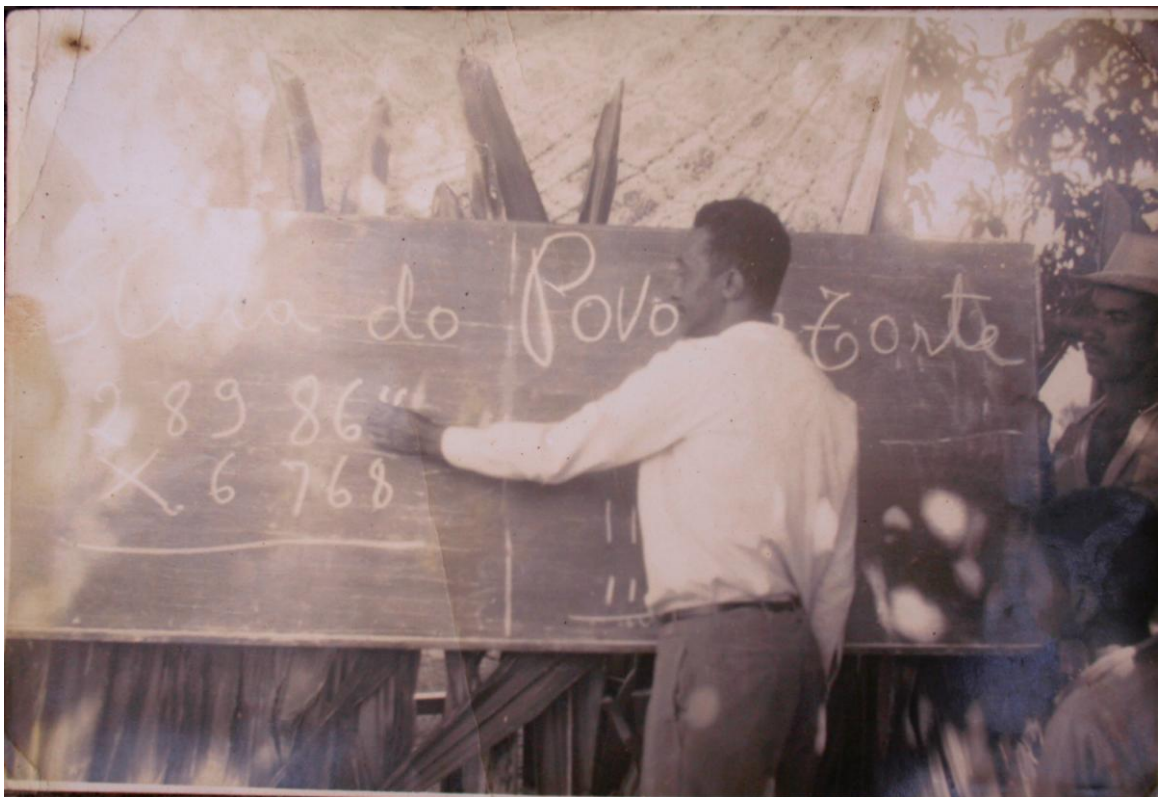 do Povo Forte
2 89 86
× 6 768